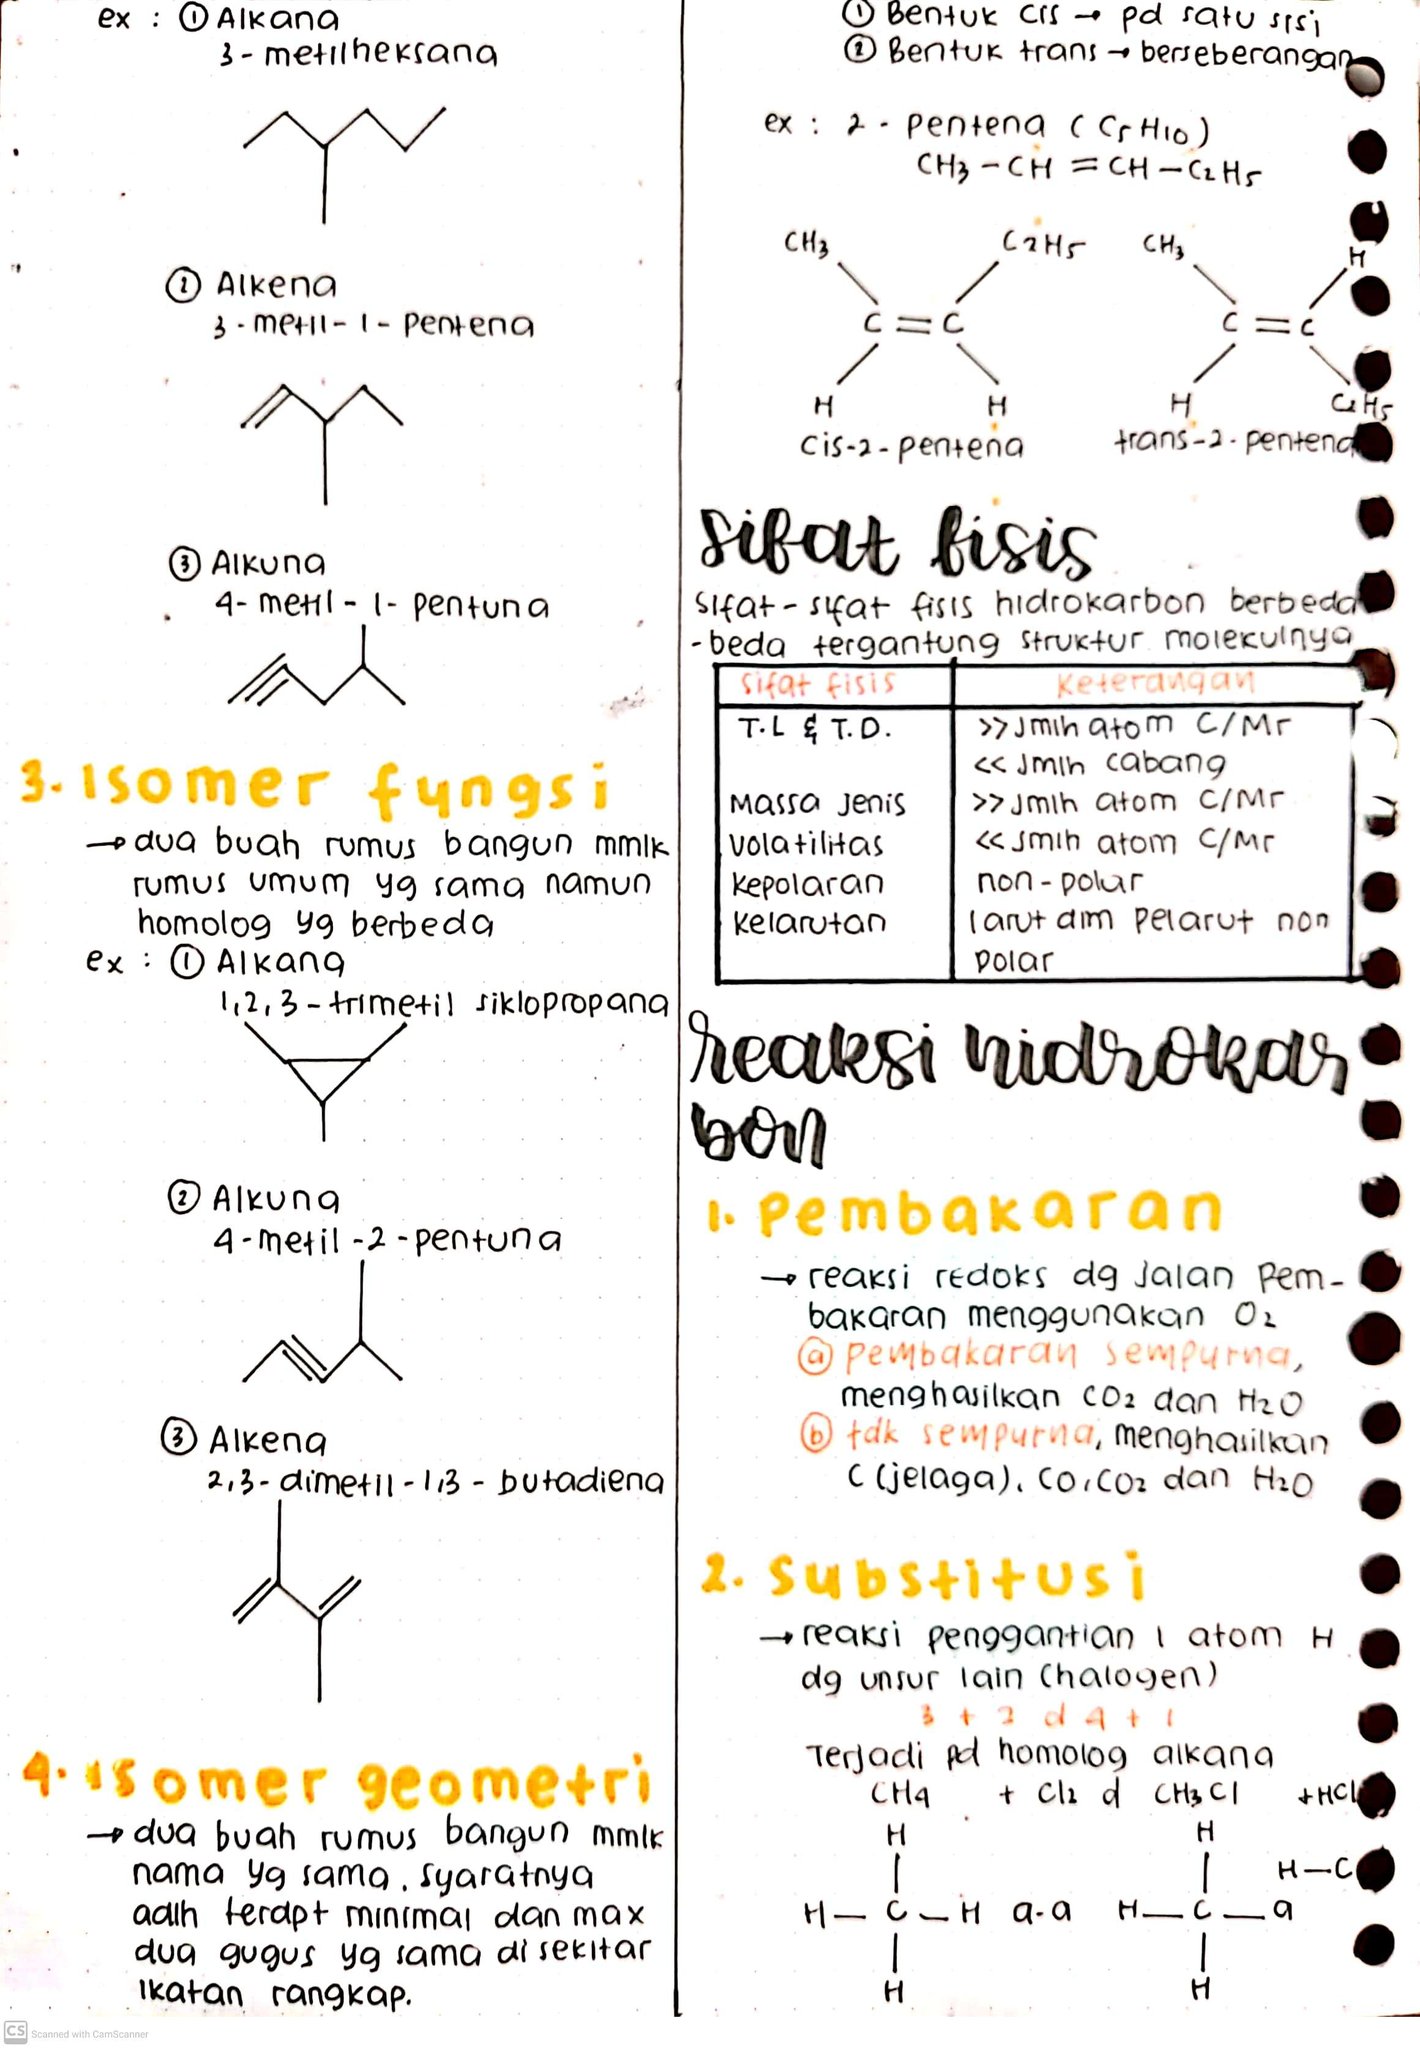 ex : ① Alkana
3-metilheksana
② Alkena
3-metil-1-pentena
③ Alkuna
4-metil-1-pentuna
3. Isomer fungsi
→ dua buah rumus bangun mmlk
rumus umum yg sama namun
homolog yg berbeda
ex : ① Alkana
1,2,3-trimetil siklopropana
② Alkuna
4-metil-2-pentuna
③ Alkena
2,3-dimetil-1,3-butadiena
4. Isomer geometri
→ dua buah rumus bangun mmlk
nama yg sama, syaratnya
adlh terdpt minimal dan max
dua gugus yg sama di sekitar
ikatan rangkap.
① Bentuk cis → pd satu sisi
② Bentuk trans → berseberangan
ex : 2-pentena (C5H10)
CH3-CH=CH-C2H5
CH3 C2H5 CH3 H
C=C C=C
H H H C2H5
cis-2-pentena trans-2-pentena
sifat fisis
Sifat-sifat fisis hidrokarbon berbeda
-beda tergantung struktur molekulnya
Sifat fisis Keterangan
T.L & T.D. >> Jmlh atom C/Mr
<< Jmlh cabang
Massa Jenis >> Jmlh atom C/Mr
Volatilitas << Jmlh atom C/Mr
Kepolaran non-polar
Kelarutan larut dlm pelarut non
polar
reaksi hidrokar
bon
1. Pembakaran
→ reaksi redoks dg Jalan Pem-
bakaran menggunakan O2
ⓐ Pembakaran sempurna,
menghasilkan CO2 dan H2O
ⓑ tdk sempurna, menghasilkan
C (jelaga), CO, CO2 dan H2O
2. Substitusi
→ reaksi penggantian 1 atom H
dg unsur lain (halogen)
3 + 2 d 4 + 1
Terjadi pd homolog alkana
CH4 + Cl2 d CH3Cl +HCl
H H
H-C
H-C-H a-a H-C-a
H H
CS Scanned with CamScanner